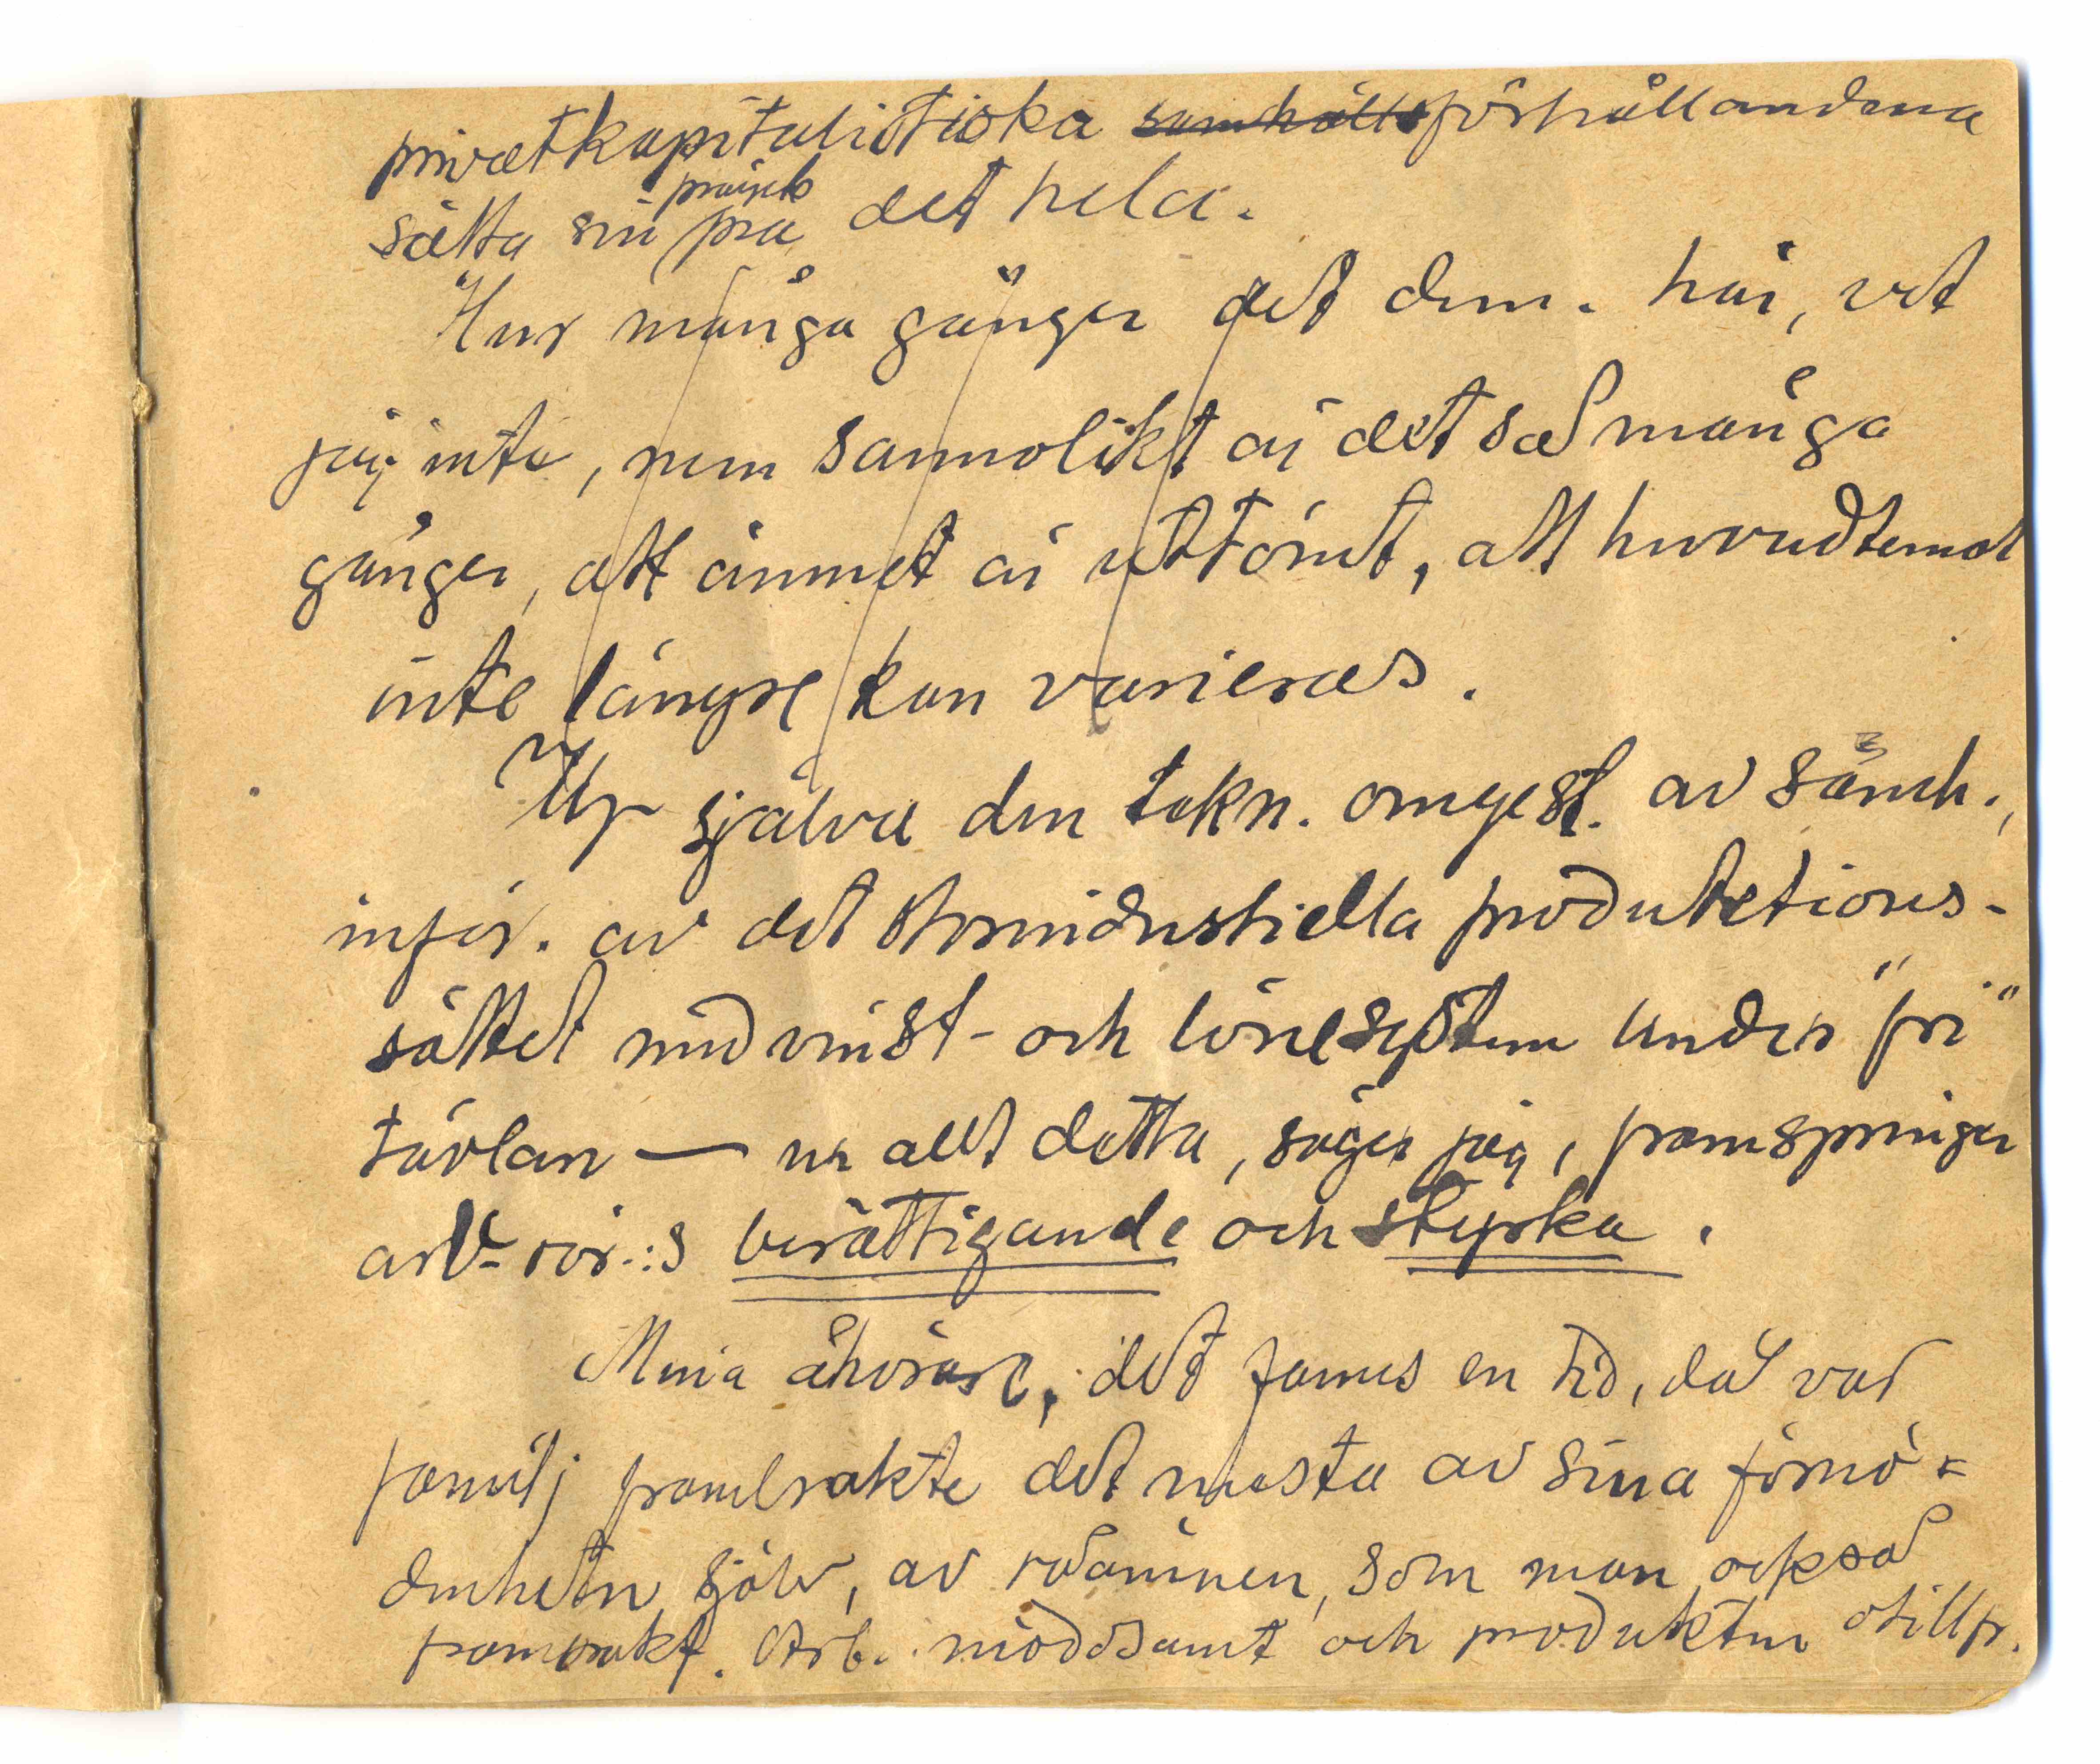 privatkapitalistiska samhälls förhållandena
sätta sin prägel på det hela.
Hur många gånger det dem. här, vet
jag inte, men sannolikt är det så många
gånger, att ämnet är uttömt, att huvudtemat
inte längre kan varieras.
Ur själva den tekn. omgest. av samh.,
inför. av det storindustriella produktions-
sättet med vinst- och lönesystem under "fri"
tävlan — ur allt detta, säger jag, framspringer
arb-rör.:s berättigande och styrka.
Mina åhörare, det fanns en tid, då var
familj frambrakte det mesta av sina förnö-
denheter själv, av råämnen, som man också
frambrakt. Arb. mödosamt och produkten otillfr.